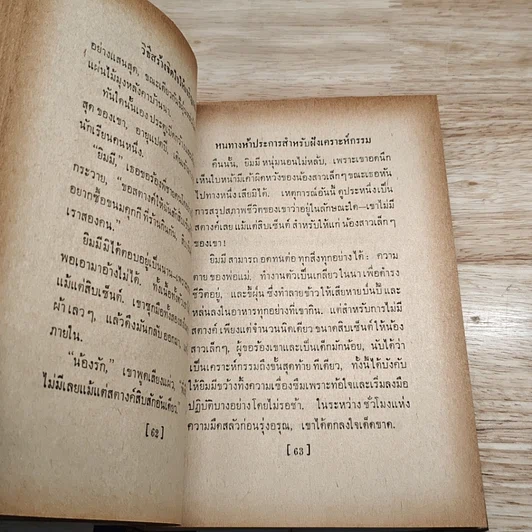 วิธีสร้างจิตใจให้
อย่างแสนสุด, ขณะเดียวกัน
(แผ่นไม้มุงหลังคาบ้านเขา
ทันใดนั้นเอง ประตู
สุด ของเขา, อายุแปดปี, เดิน
นักเรียนคนหนึ่ง.
"ยิมมี่," เธอขอร้อง
กระวาย, "ขอสตางค์ให้
อยากซื้อขนมคุกกี้ ที่ร้าน
เราสองคน."
ยิมมี่ มิได้ตอบอยู่เป็นนาน
พอเอามาอ้างไม่ได้. ทั้งเนื้อทั้ง
แม้แต่สิบเซ็นต์. เขาซุกมือ
ผ้าเลวๆ. แล้วดึงมันกลับออก
ภายใน.
"น้องรัก," เขาพูดเสียงแผ่ว,
ไม่มีเลยแม้แต่สตางค์สิบสักอันเดียว."
[ 62 ]
หนทางห้าประการสำหรับฝังเคราะห์กรรม
คืนนั้น, ยิมมี่ หนุ่มนอนไม่หลับ, เพราะเขาอดนึก
เห็นใบหน้ามีเค้าผิดหวังของน้องสาวเล็กๆ ขณะเธอหัน
ไปทางหนึ่งเสียมิได้. เหตุการณ์อันนี้ ดูประหนึ่งเป็น
การสรุปสภาพชีวิตของเขาว่าอยู่ในลักษณะใด—เขาไม่มี
สตางค์เลย แม้แต่สิบเซ็นต์ สำหรับให้แก่ น้องสาวเล็กๆ
ของเขา!
ยิมมี่ สามารถ อดทนต่อ ทุกสิ่งทุกอย่างได้: ความ
ตาย ของพ่อแม่. ทำงานตัวเป็นเกลียว ในนา เพื่อดำรง
ชีวิตอยู่. และขี้ฝุ่น ซึ่งทำลายข้าว ให้เสียหายป่นปี้ และ
หล่นลงในอาหารทุกอย่างที่เขากิน. แต่สำหรับการไม่มี
สตางค์ เพียงจำนวนนิดเดียว ขนาดสิบเซ็นต์ ให้น้อง
สาวเล็กๆ, ผู้ขอร้องเขาและเป็นเด็กมักน้อย, นับได้ว่า
เป็นเคราะห์กรรมถึงขั้นสุดท้าย ทีเดียว, ทั้งนี้ได้บังคับ
ให้ยิมมี่ขว้างทิ้งความเซื่องซึมเพราะท้อใจและเริ่มลงมือ
ปฏิบัติบางอย่าง โดยไม่รอช้า. ในระหว่าง ชั่วโมงแห่ง
ความมืดสลัวก่อนรุ่งอรุณ, เขาได้ตกลงใจเด็ดขาด.
[ 63 ]